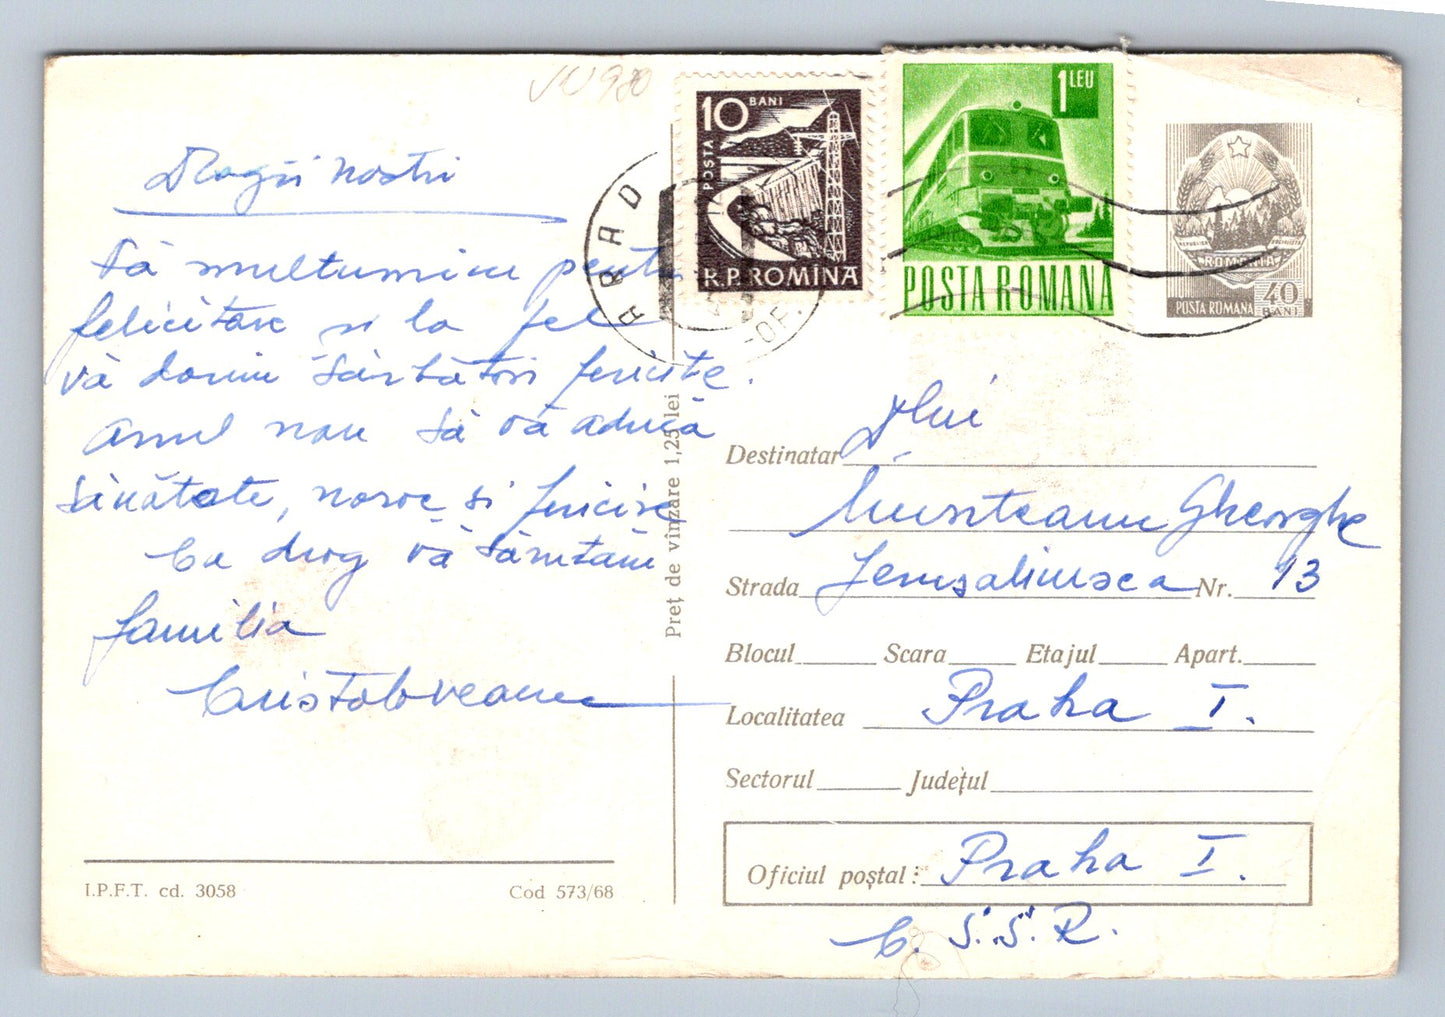 Dragii nostri
Vă multumim pentru
felicitare si la fel
vă dorim Sărbători fericite.
Anul nou să vă aducă
sănătate, noroc si fericire
Cu drag vă sărutăm
familia
Cristoloveanu
I.P.F.T. cd. 3058
Cod 573/68
Preț de vînzare 1,25 lei
10 BANI
POSTA
R.P.ROMÎNA
1 LEU
POSTA ROMANA
REPUBLICA SOCIALISTA
ROMANIA
POSTA ROMANA 40 BANI
ARAD
Destinatar Dlui
Munteanu Gheorghe
Strada Jerusalimsca Nr. 13
Blocul Scara Etajul Apart.
Localitatea Praha I.
Sectorul Județul
Oficiul poștal: Praha I.
C. S. S. R.